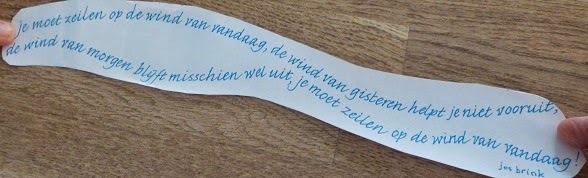 je moet zeilen op de wind van vandaag, de wind van gisteren helpt je niet vooruit,
de wind van morgen blijft misschien wel uit, je moet zeilen op de wind van vandaag!
jos brink